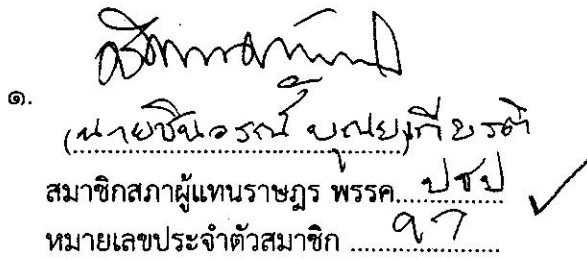 ๑.
(นายชินวรณ์ บุณยเกียรติ)
สมาชิกสภาผู้แทนราษฎร พรรค ปชป
หมายเลขประจำตัวสมาชิก ๙๗